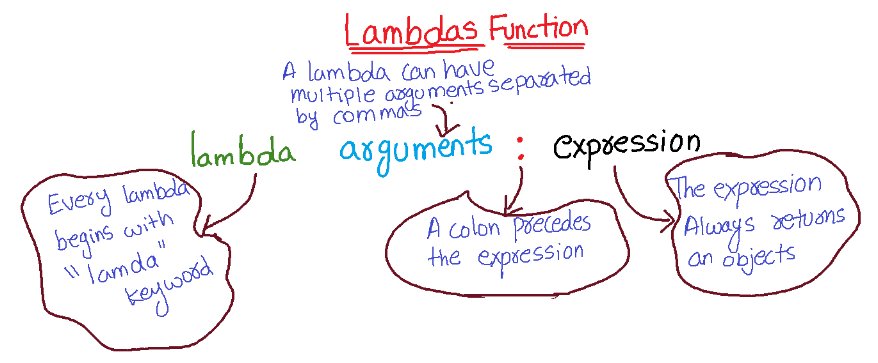 Lambdas Function
A lambda can have
multiple arguments separated
by commas
lambda arguments : expression
Every lambda
begins with
"lamda"
keyword
A colon precedes
the expression
The expression
Always returns
an objects